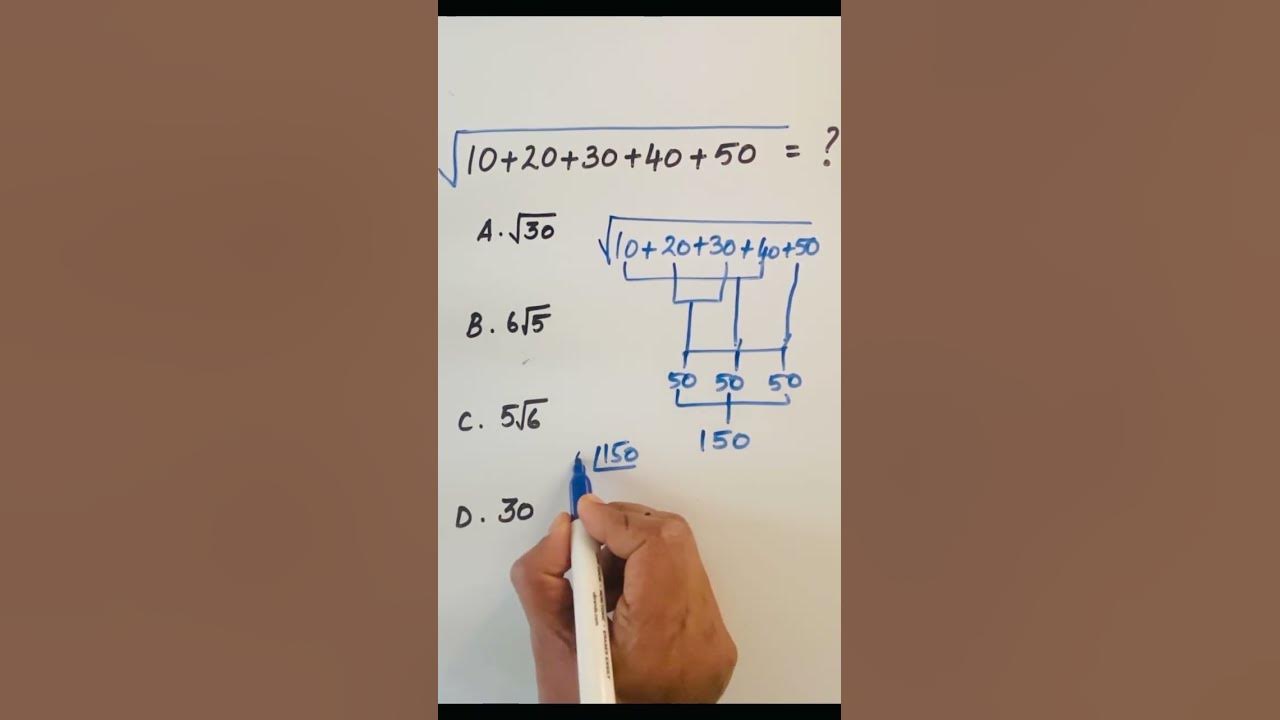 √10+20+30+40+50 = ?
A. √30
√10+20+30+40+50
B. 6√5
50 50 50
C. 5√6
150
150
D. 30